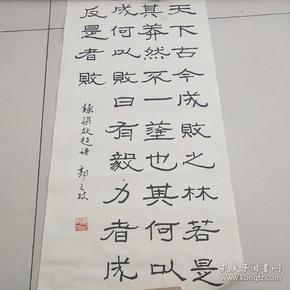 天下古今成败之林若是
其莽然不一途也其何以
成何以败曰有毅力者成
反是者败
录梁启超语 郭之放
孔夫子旧书网